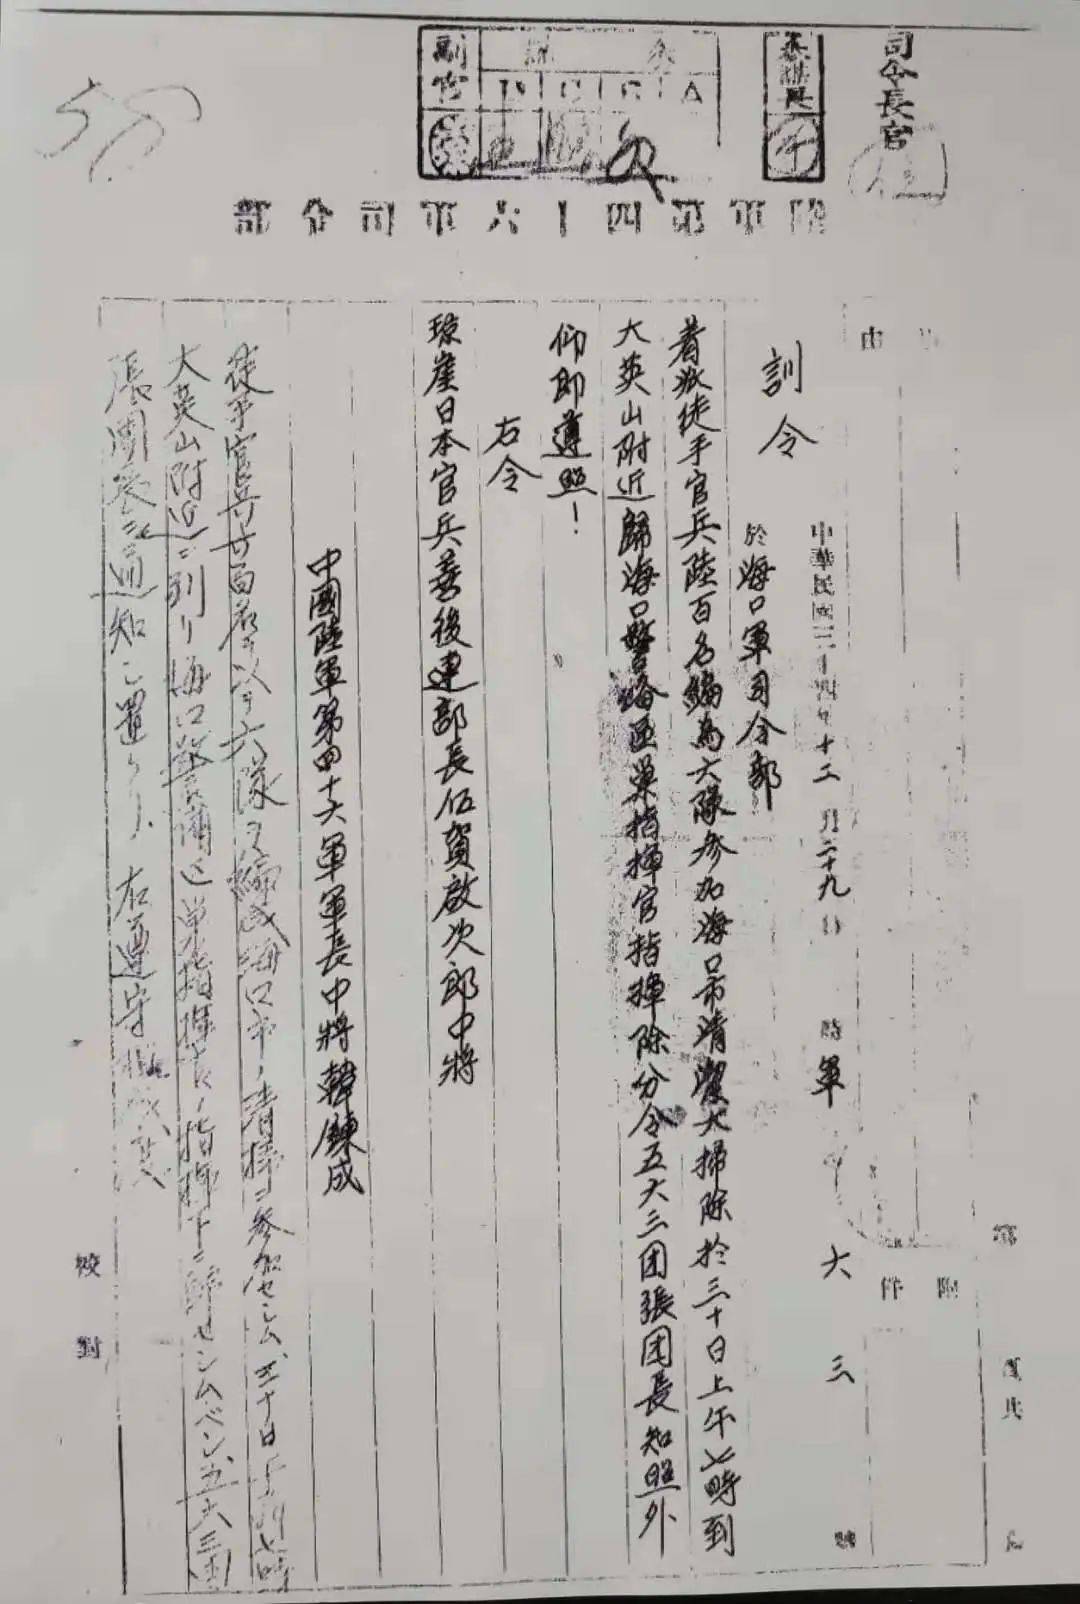 司令長官
參謀長
副官
A
陸軍第四十六軍司令部
由
附件
訓令
中華民國三十四年十二月二十九日 時
軍 大 三 號
於海口軍司令部
着派徒手官兵陸百名編為六隊參加海口市清潔大掃除於三十日上午七時到
大英山附近歸海口警備區巢指揮官指揮除分令五六三团張团長知照外
仰即遵照！
右令
琼崖日本官兵善後連部長伍賀啟次郎中將
中國陸軍第四十六軍軍長中將韓鍊成
徒手官兵六百名ヲ以テ六隊ヲ編成海口市ノ清掃ニ參加セシム、三十日上午七時
大英山附近ニ到リ海口警備区 指揮官ノ指揮下ニ歸セシムベシ、五六三團
張團長ニ通知シ置ケリ、右遵守
校對